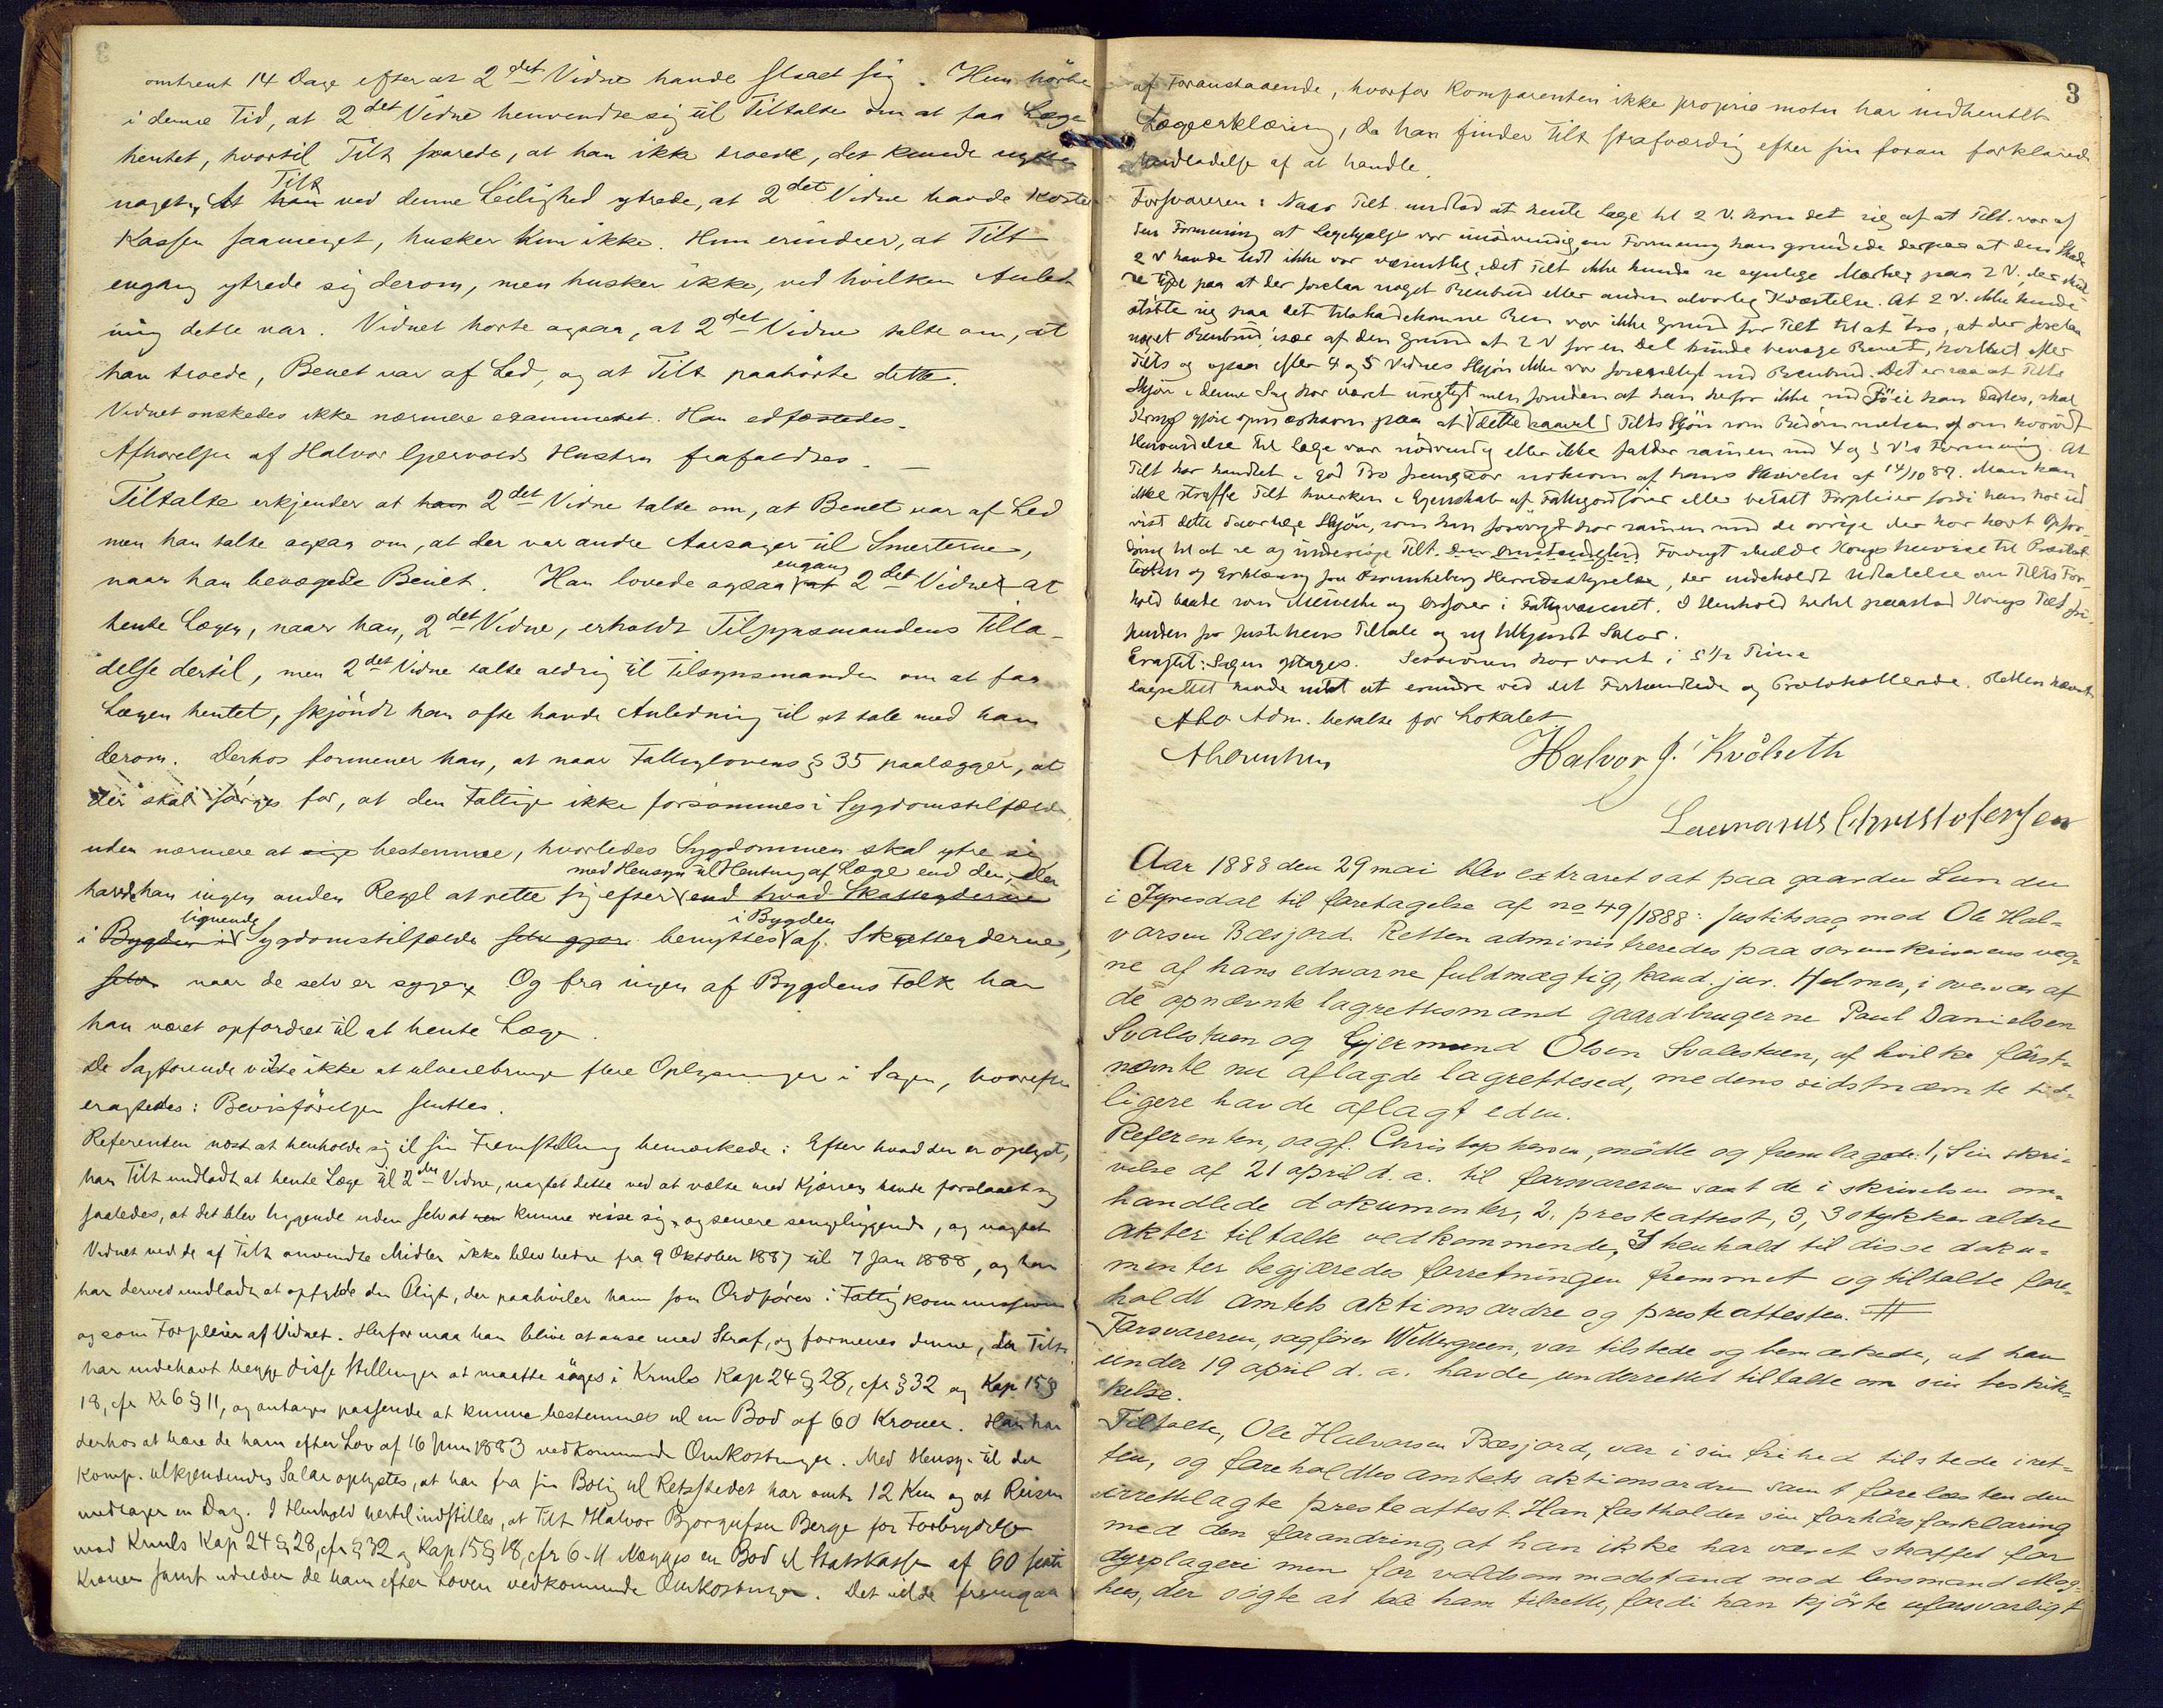 omtrent 14 Dage efter at 2det Vidne havde slaaet sig. Hun hørte
i denne Tid, at 2det Vidne henvendte sig til Tiltalte om at faa Læge
hentet, hvortil Tilt svarede, at han ikke troede, det kunde nytte
noget. At Tilt ved denne Leilighed ytrede, at 2det Vidne havde kostet
Kassen saameget, husker hun ikke. Hun erindrer, at Tilt
engang ytrede sig derom, men husker ikke, ved hvilken Anled-
ning dette var. Vidnet hørte ogsaa, at 2det Vidne talte om, at
han troede, Benet var af Led, og at Tilt paahørte dette.
Vidnet ønskedes ikke nærmere examineret. Han edfæstedes.
Afhørelsen af Halvor Gjervolds Hustru frafaldtes. —
Tiltalte erkjender at han 2det Vidne talte om, at Benet var af Led
men han talte ogsaa om, at der var andre Aarsager til Smerterne,
naar han bevægede Benet. Han lovede ogsaa engang 2det Vidne at
hente Lægen, naar han, 2det Vidne, erholdt Tilsynsmandens Tilla-
delse dertil, men 2det Vidne talte aldrig til Tilsynsmanden om at faa
Lægen hentet, skjøndt han ofte havde Anledning til at tale med ham
derom. Derhos formener han, at naar Fattiglovens § 35 paalægger, at
der skal sørges for, at den Fattige ikke forsømmes i Sygdomstilfælde,
uden nærmere at sige bestemme, hvorledes Sygdommen skal ytre sig
havde han ingen anden Regel at rette sig efter med Hensyn til Hentning af Læge end den, der
end hvad Skatteyderne
i Bygden i lignende Sygdomstilfælde selv gjøre benyttes i Bygden af Skatteyderne,
selv naar de selv er syge. Og fra ingen af Bygdens Folk har
han været opfordret til at hente Læge.
De Sagførende vidste ikke at tilveiebringe flere Oplysninger i Sagen, hvorefter
eragtedes: Bevisførelsen sluttes.
Referenten næst at henholde sig til sin Fremstilling bemærkede: Efter hvad der er oplyst,
har Tilt undladt at hente Læge til 2det Vidne, uagtet dette ved at vælte med Kjærren havde forslaaet sig
saaledes, at det blev liggende uden selv at kunne reise sig, og senere sengeliggende, og uagtet
Vidnet ved de af Tilt anvendte Midler ikke blev bedre fra 9 Oktober 1887 til 7 Jan 1888, og han
har derved undladt at opfylde den Pligt, der paahviler ham som Ordfører i Fattigkommissionen
og som Forpleier af Vidnet. Herfor maa han blive at anse med Straf, og formenes denne, da Tilt
har indehavt begge disse Stillinger at maatte søges i Krmls Kap 24 § 28, cfr § 32 og Kap 15 §
18, cfr K 6 § 11, og antages passende at kunne bestemmes til en Bod af 60 Kroner. Han har
derhos at bære de ham efter Lov af 16 Juni 1883 vedkommende Omkostninger. Med Hensyn til det
Komp. tilkjendendes Salær oplystes, at han fra sin Bolig til Retsstedet har omtr 12 Km og at Reisen
medtager en Dag. I Henhold hertil indstilles, at Tilt Halvor Bjorgufsen Berge for Forbrydelse
mod Krmls Kap 24 § 28, cfr § 32 og Kap 15 § 18, cfr 6-11 ilægges en Bod til Statskassen af 60 sexti
Kroner samt udreder de ham efter Loven vedkommende Omkostninger. Det vil da fremgaa
3
af Foranstaaende, hvorfor Komparenten ikke proprio motu har indhentet
Lægeerklæring, da han finder Tilt strafværdig efter sin foran forklarede
Undladelse af at handle.
Forsvareren: Naar Tilt. undlod at hente Læge til 2 V. kom det sig af at Tilt. var af
den Formening at Lægehjælp var unødvendig, en Formening han grundede derpaa at den Skade
2 V havde lidt ikke var væsentlig, idet Tilt ikke kunde se synlige Mærker paa 2 V, der skul-
de tyde paa at der forelaa noget Benbrud eller anden alvorlig Kvæstelse. At 2 V. ikke kunde
støtte sig paa det tilskadekomne Ben var ikke Grund for Tilt til at tro, at der forelaa
noget Benbrud især af den Grund at 2 V for en Del kunde bevæge Benet, hvilket efter
Tilts og ogsaa efter 4 og 5 Vidnes Skjøn ikke var foreneligt med Benbrud. Det er saa at Tilts
Skjøn i denne Sag har været urigtigt men foruden at han herfor ikke med Føie kan dadles, skal
Komp gjøre opmærksom paa at dette saavel Tilts Skjøn som Bedømmelsen af om hvorvidt
Henvendelse til Læge var nødvendig eller ikke falder sammen med 4 og 5 V's Formening. At
Tilt har handlet i god Tro fremgaar noksom af hans Skrivelse af 14/10 87. Man kan
ikke straffe Tilt hverken i Egenskab af Fattigordfører eller betalt Forpleier fordi han har ud-
vist dette daarlige Skjøn, som han forøvrigt har sammen med de øvrige der har havt Opfor-
dring til at se og undersøge Tilt. Forøvrigt skulde Komp henvise til Præsteat-
testen og Erklæring fra Herredsstyrelse, der indeholdt Udtalelse om Tilts For-
hold baade som Menneske og Ordfører i Fattigvæsenet. I Henhold hertil paastod Komp Tilt fri-
funden for Justitiens Tiltale og sig tilkjendt Salær.
Eragtet: Sagen optages. Sessionen har varet i 5½ Time
Lagrettet havde intet at erindre ved det Forhandlede og Protokollerede. Retten hævet
Adm. betalte for Lokalet
Halvor J. Kvålseth
Laurantius Christofersen
Aar 1888 den 29 mai blev extraret sat paa gaarden Lunden
i Fyresdal til foretagelse af no 49/1888: Justitssag mod Ole Hal-
vorsen Bæsjord. Retten administreredes paa sorenskriverens veg-
ne af hans edsvorne fuldmægtig, kand. jur. Holmer, i overvær af
de opnævnte lagrettesmænd gaardbrugerne Paul Danielsen
Svalestuen og Gjermund Olsen Svalestuen, af hvilke først-
nævnte nu aflagde lagrettesed, medens sidstnævnte tid-
ligere havde aflagt eden.
Referenten, sagf. Christophersen, mødte og fremlagde: 1, Sin skri-
velse af 21 april d. a. til forsvareren samt de i skrivelsen om-
handlede dokumenter, 2. presteattest, 3, 3 stykker ældre
akter tiltalte vedkommende. I henhold til disse doku-
menter begjæredes forretningen fremmet og tiltalte fore-
holdt amtets aktionsordre og presteattesten.
Forsvareren, sagfører Wettergreen, var tilstede og bemærkede, at han
under 19 april d. a. havde underrettet tiltalte om sin beskik-
kelse.
Tiltalte, Ole Halvorsen Bæsjord, var i sin frihed tilstede i ret-
ten, og foreholdtes amtets aktionsordre samt forelæstes den
irettelagte presteattest. Han fastholder sin forhørsforklaring
med den forandring, at han ikke har været straffet for
dyrplageri men for voldsom modstand mod lensmand Mog-
hus, der søgte at tale ham tilrette, fordi han kjørte uforsvarligt